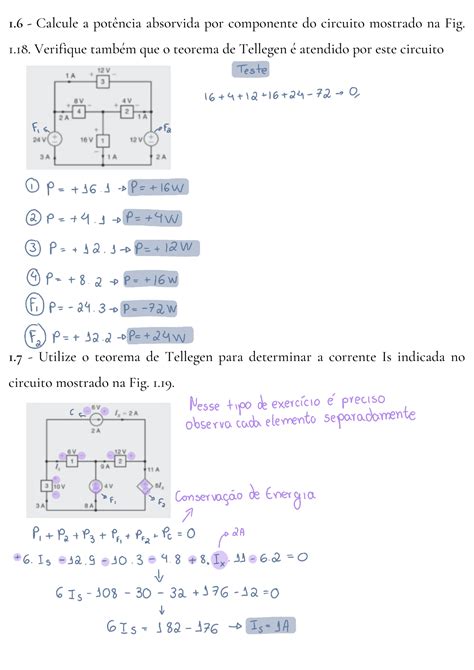 1.6 - Calcule a potência absorvida por componente do circuito mostrado na Fig.
1.18. Verifique também que o teorema de Tellegen é atendido por este circuito
Teste
16+4+12+16+24-72 → 0,
12 V
1 A
3
8 V
4 V
4
2
2 A
1 A
F1
F2
24 V
16 V
1
12 V
3 A
1 A
2 A
① P = +16.1 → P=+16W
② P = +4.1 → P=+4W
③ P = +12.1 → P=+12W
④ P = +8.2 → P=+16W
F1 P = -24.3 → P=-72W
F2 P = +12.2 → P=+24W
1.7 - Utilize o teorema de Tellegen para determinar a corrente Is indicada no
circuito mostrado na Fig. 1.19.
Nesse tipo de exercício é preciso
observa cada elemento separadamente
C
6 V
Ix = 2 A
2 A
6 V
12 V
1
2
Is
9 A
11 A
3
10 V
4 V
8Ix
F1
F2
3 A
8 A
Conservação de Energia
P1 + P2 + P3 + PF1 + PF2 + PC = 0
2A
+6.Is -12.9 -10.3 -4.8 +8.Ix.11 -6.2 = 0
6Is -108 - 30 - 32 +176 -12 = 0
6Is = 182 -176 → Is = 1A